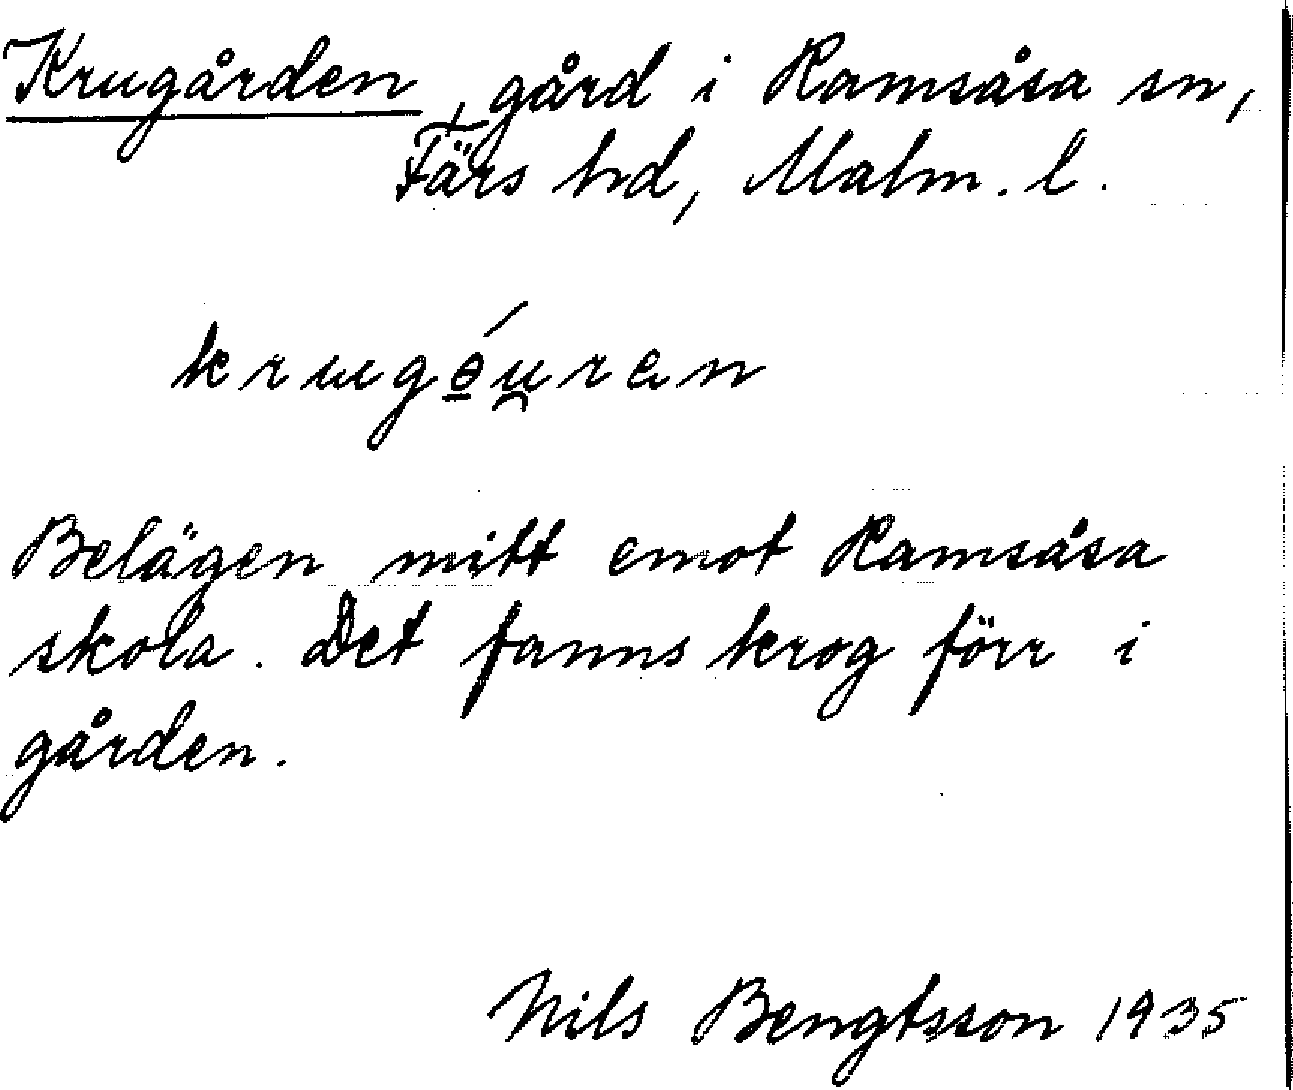 Krugården, gård i Ramsåsa sn,
Färs hd, Malm. l.
Belägen mitt emot Ramsåsa
skola. Det fanns krog förr i
gården.
Nils Bengtsson 1935